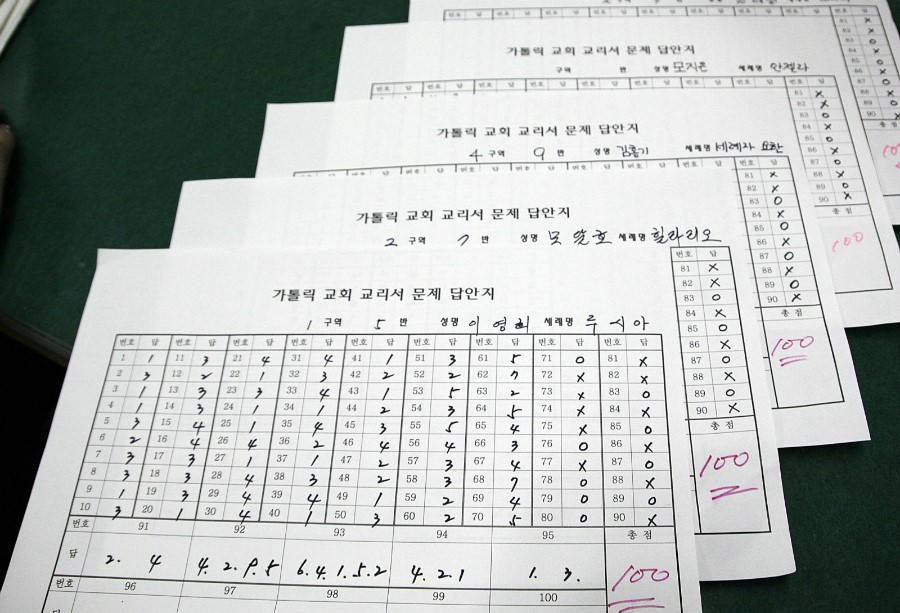 가톨릭 교회 교리서 문제 답안지
구역 반 성명 모지은 세례명 안젤라
번호 답 번호 답 번호 답 번호 답 번호 답 번호 답 번호 답 번호 답 번호 답
81 X
82 X
83 O
84 X
85 O
86 X
87 O
88 X
89 O
90 X
총점
100
가톨릭 교회 교리서 문제 답안지
4 구역 9 반 성명 김홍기 세례명 세례자 요한
81 X
82 X
83 O
84 X
85 O
86 X
87 O
88 X
89 O
90 X
총점
100
가톨릭 교회 교리서 문제 답안지
2 구역 7 반 성명 모 세례명 힐라리오
번호 답
81 X
82 X
83 O
84 X
85 O
86 X
87 O
88 X
89 O
90 X
총점
100
가톨릭 교회 교리서 문제 답안지
1 구역 5 반 성명 이영희 세례명 루시아
번호 답 번호 답 번호 답 번호 답 번호 답 번호 답 번호 답 번호 답 번호 답
1 1 11 3 21 4 31 4 41 1 51 3 61 5 71 O 81 X
2 3 12 2 22 1 32 3 42 2 52 2 62 7 72 X 82 X
3 1 13 3 23 3 33 4 43 1 53 5 63 2 73 X 83 O
4 1 14 3 24 1 34 1 44 2 54 3 64 5 74 X 84 X
5 3 15 4 25 1 35 4 45 3 55 5 65 4 75 X 85 O
6 2 16 4 26 4 36 2 46 4 56 4 66 3 76 O 86 X
7 3 17 3 27 1 37 1 47 2 57 3 67 4 77 X 87 O
8 3 18 3 28 4 38 3 48 2 58 3 68 7 78 O 88 X
9 1 19 3 29 4 39 4 49 1 59 2 69 4 79 O 89 O
10 3 20 1 30 4 40 1 50 3 60 2 70 5 80 O 90 X
번호 91 92 93 94 95 총점
답 2. 4 4. 2. 9. 5 6. 4. 1. 5. 2 4. 2. 1 1. 3. 100
번호 96 97 98 99 100